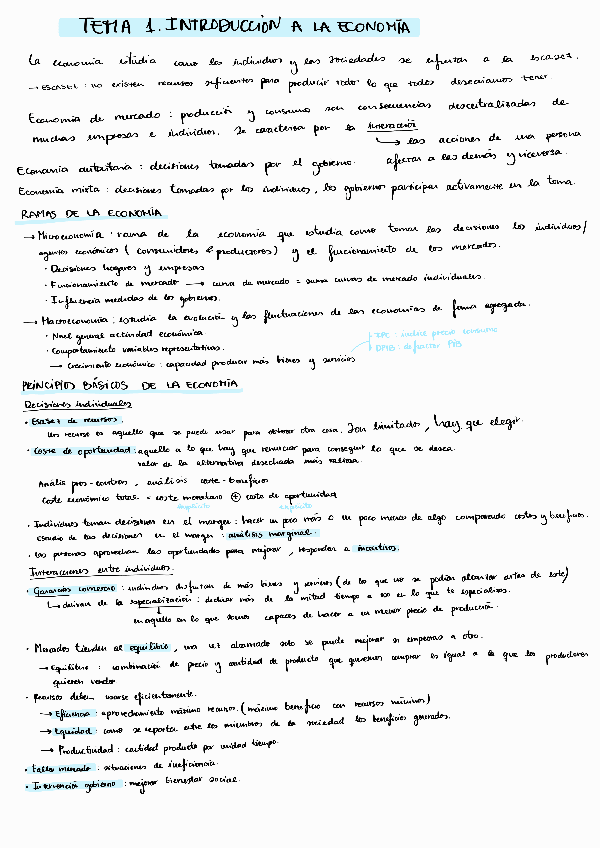 TEMA 1. INTRODUCCIÓN A LA ECONOMÍA
La economía estudia como los individuos y las sociedades se enfrentan a la escasez.
→ ESCASEZ: no existen recursos suficientes para producir todo lo que todos desearíamos tener.
Economía de mercado: producción y consumo son consecuencias descentralizadas de
muchas empresas e individuos. Se caracteriza por la interacción
↳ las acciones de una persona
afectan a las demás y viceversa.
Economía autoritaria: decisiones tomadas por el gobierno.
Economía mixta: decisiones tomadas por los individuos, los gobiernos participan activamente en la toma.
RAMAS DE LA ECONOMÍA
→ Microeconomía: rama de la economía que estudia como toman las decisiones los individuos/
agentes económicos (consumidores e productores) y el funcionamiento de los mercados.
· Decisiones hogares y empresas
· Funcionamiento de mercado → curva de mercado = suma curvas de mercado individuales.
· Influencia medidas de los gobiernos.
→ Macroeconomía: estudia la evolución y las fluctuaciones de las economías de forma agregada.
· Nivel general actividad económica.
· Comportamiento variables representativas.
IPC: incluye precio consumo
DPIB: deflactor PIB
→ Crecimiento económico: capacidad producir más bienes y servicios
PRINCIPIOS BÁSICOS DE LA ECONOMÍA
Decisiones individuales
· Escasez de recursos.
Un recurso es aquello que se puede usar para obtener otra cosa. Son limitados, hay que elegir.
· Coste de oportunidad: aquello a lo que hay que renunciar para conseguir lo que se desea.
valor de la alternativa desechada más valiosa.
Análisis pros-contras, análisis coste-beneficio
Coste económico total = coste monetario ⊕ coste de oportunidad
explícito implícito
· Individuos toman decisiones en el margen: hacer un poco más o un poco menos de algo comparando costes y beneficios.
Estudio de las decisiones en el margen: análisis marginal.
· Las personas aprovechan las oportunidades para mejorar, responden a incentivos.
Interacciones entre individuos.
· Ganancias comercio: individuos disfrutan de más bienes y servicios (de lo que no se podían alcanzar antes de este)
↳ derivan de la especialización: dedicar más de la mitad tiempo a eso en lo que te especializas.
en aquello en lo que somos capaces de hacer a un menor precio de producción.
· Mercados tienden al equilibrio, una vez alcanzado solo se puede mejorar si empeoras a otro.
→ Equilibrio: combinación de precio y cantidad de producto que queremos comprar es igual a la que los productores
quieren vender
· Recursos deben usarse eficientemente.
→ Eficiencia: aprovechamiento máximo recursos. (máximo beneficio con recursos mínimos)
→ Equidad: como se reparten entre los miembros de la sociedad los beneficios generados.
→ Productividad: cantidad producto por unidad tiempo.
· Fallos mercado: situaciones de ineficiencia.
· Intervención gobierno: mejorar bienestar social.